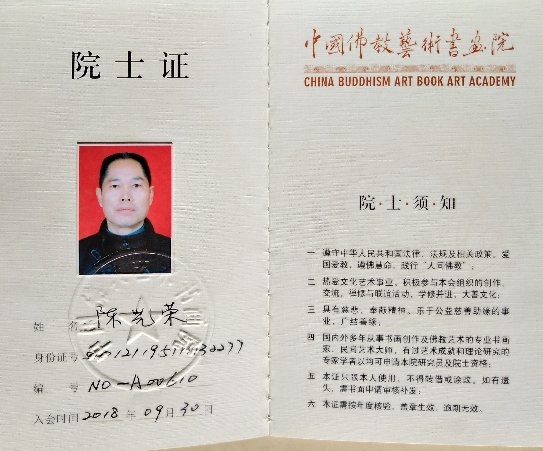 院士证
姓 名 陈光荣
身份证号
编 号 NO-A00610
入会时间 2018 年 09 月 30 日
中國佛教藝術書画院
CHINA BUDDHISM ART BOOK ART ACADEMY
院·士·须·知
一 遵守中华人民共和国法律、法规及相关政策。爱
国爱教，遵佛慧命，践行“人间佛教”；
二 热爱文化艺术事业，积极参与本会组织的创作、
交流，禅修与联谊活动，学修并进，大善文化；
三 具有慈悲、奉献精神，乐于公益慈善助缘的事
业，广结善缘；
四 国内外多年从事书画创作及佛教艺术的专业书画
家、民间艺术大师，有过艺术成就和理论研究的
专家学者以均可申请本院研究员及院士资格；
五 本证只限本人使用，不得转借或涂改，如有遗
失，需书面申请审核补发；
六 本证需按年度核验，盖章生效，逾期无效。